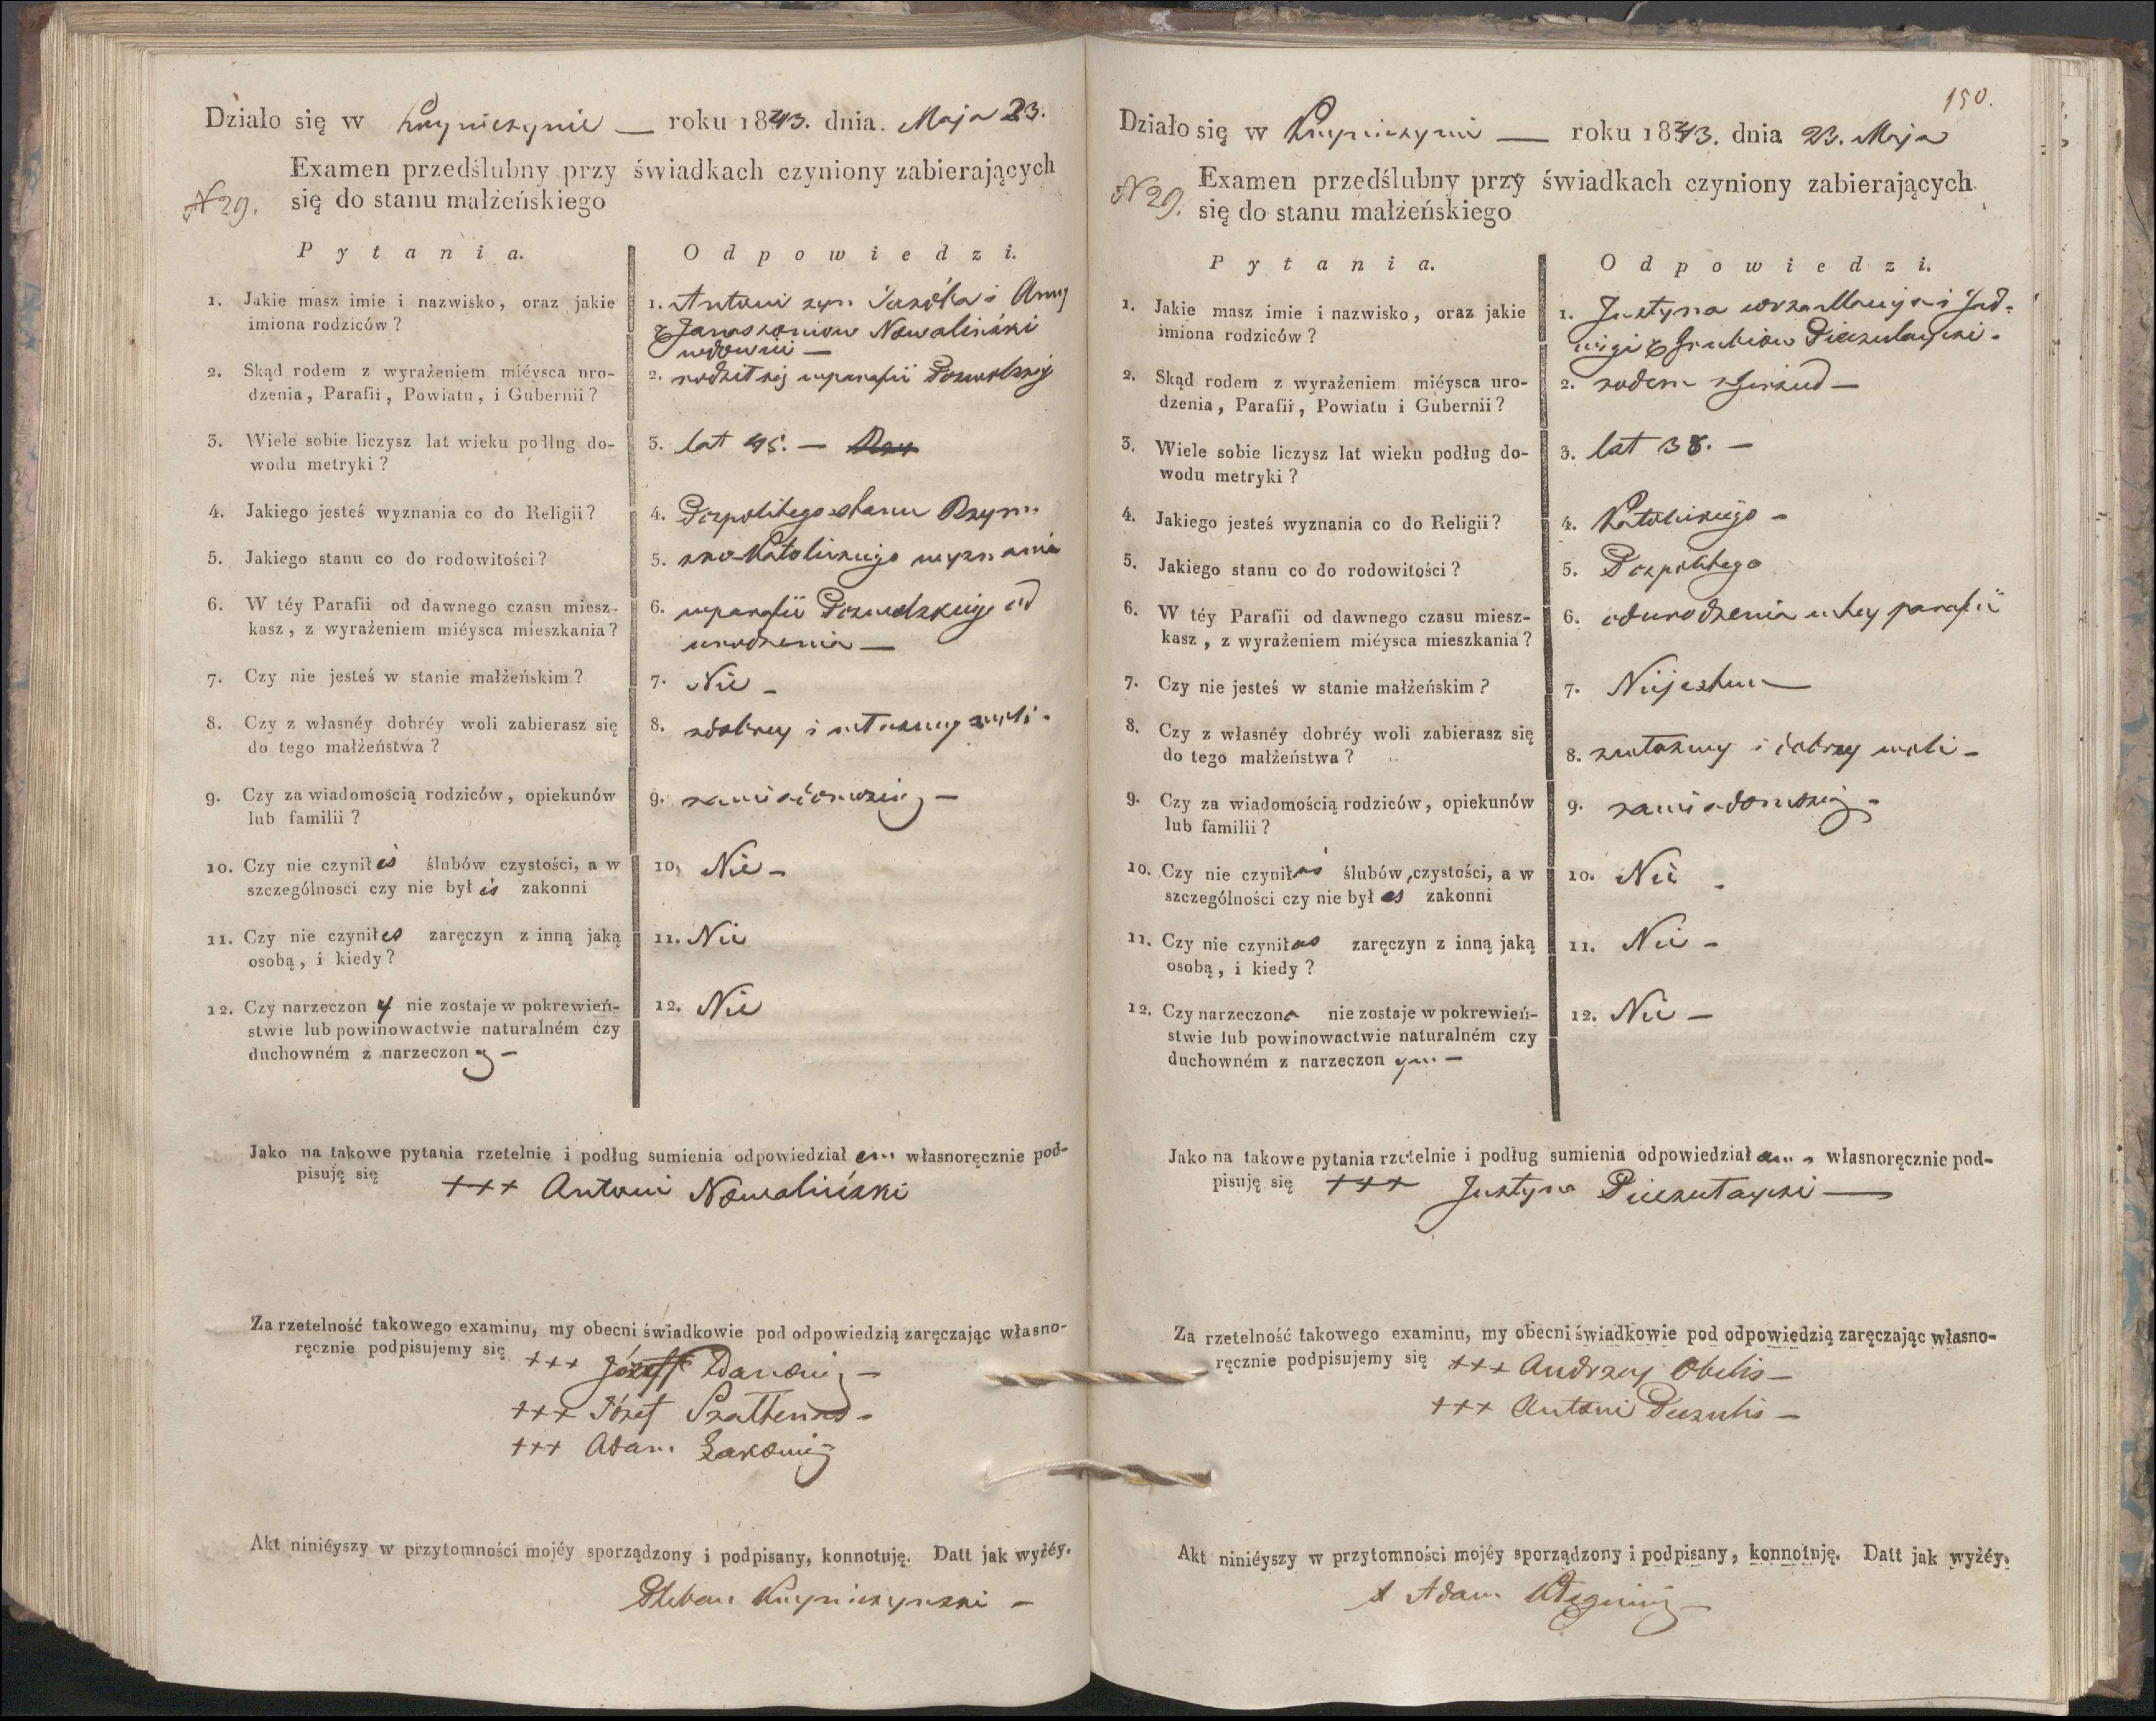 Działo się w — roku 1843. dnia. Maja 23.
N 29.
Examen przedślubny przy świadkach czyniony zabierających
się do stanu małżeńskiego
Pytania.
Odpowiedzi.
1. Jakie masz imie i nazwisko, oraz jakie
imiona rodziców?
1. Antoni syn i Anny
z Nowaliński
2. Skąd rodem z wyrażeniem miéysca uro-
dzenia, Parafii, Powiatu, i Gubernii?
2. rodził się w parafii
3. Wiele sobie liczysz lat wieku podług do-
wodu metryki?
3. lat 45. —
4. Jakiego jesteś wyznania co do Religii?
4. Pospolitego stanu Rzym.
5. Jakiego stanu co do rodowitości?
5. sko-Katolickiego wyznania
6. W téy Parafii od dawnego czasu miesz-
kasz, z wyrażeniem miéysca mieszkania?
6. w parafii od
urodzenia —
7. Czy nie jesteś w stanie małżeńskim?
7. Nie –
8. Czy z własnéy dobréy woli zabierasz się
do tego małżeństwa?
8. z dobrey i własney woli.
9. Czy za wiadomością rodziców, opiekunów
lub familii?
9. za wiadomością —
10. Czy nie czynił eś ślubów czystości, a w
szczególnosci czy nie był eś zakonni
10. Nie –
11. Czy nie czynił es zaręczyn z inną jaką
osobą, i kiedy?
11. Nie
12. Czy narzeczon y nie zostaje w pokrewień-
stwie lub powinowactwie naturalném czy
duchowném z narzeczon ą —
12. Nie
Jako na takowe pytania rzetelnie i podług sumienia odpowiedział em własnoręcznie pod-
pisuję się +++ Antoni Nowaliński
Za rzetelność takowego examinu, my obecni świadkowie pod odpowiedzią zaręczając własno-
ręcznie podpisujemy się +++ Józeff —
+++ Józef
+++ Adam
Akt niniéyszy w przytomności mojéy sporządzony i podpisany, konnotuję. Datt jak wyżéy.
Pleban —
150.
Działo się w — roku 1843. dnia 23. Maja
N 29.
Examen przedślubny przy świadkach czyniony zabierających
się do stanu małżeńskiego
Pytania.
Odpowiedzi.
1. Jakie masz imie i nazwisko, oraz jakie
imiona rodziców?
1. Justyna i Jad-
wigi z
2. Skąd rodem z wyrażeniem miéysca uro-
dzenia, Parafii, Powiatu i Gubernii?
2. rodem —
3. Wiele sobie liczysz lat wieku podług do-
wodu metryki?
3. lat 38. —
4. Jakiego jesteś wyznania co do Religii?
4. Katolickiego –
5. Jakiego stanu co do rodowitości?
5. Pospolitego
6. W téy Parafii od dawnego czasu miesz-
kasz, z wyrażeniem miéysca mieszkania?
6. od urodzenia w tey parafii
7. Czy nie jesteś w stanie małżeńskim?
7. Nie jestem —
8. Czy z własnéy dobréy woli zabierasz się
do tego małżeństwa?
8. z własney i dobrey woli –
9. Czy za wiadomością rodziców, opiekunów
lub familii?
9. za wiadomością –
10. Czy nie czynił aś ślubów czystości, a w
szczególności czy nie był as zakonni
10. Nie –
11. Czy nie czynił as zaręczyn z inną jaką
osobą, i kiedy?
11. Nie –
12. Czy narzeczona nie zostaje w pokrewień-
stwie lub powinowactwie naturalném czy
duchowném z narzeczon ym —
12. Nie —
Jako na takowe pytania rzetelnie i podług sumienia odpowiedział am własnoręcznie pod-
pisuję się +++ Justyna —
Za rzetelność takowego examinu, my obecni świadkowie pod odpowiedzią zaręczając własno-
ręcznie podpisujemy się +++ Andrzey Obelis —
+++ Antoni —
Akt niniéyszy w przytomności mojéy sporządzony i podpisany, konnotuję. Datt jak wyżéy.
X Adam